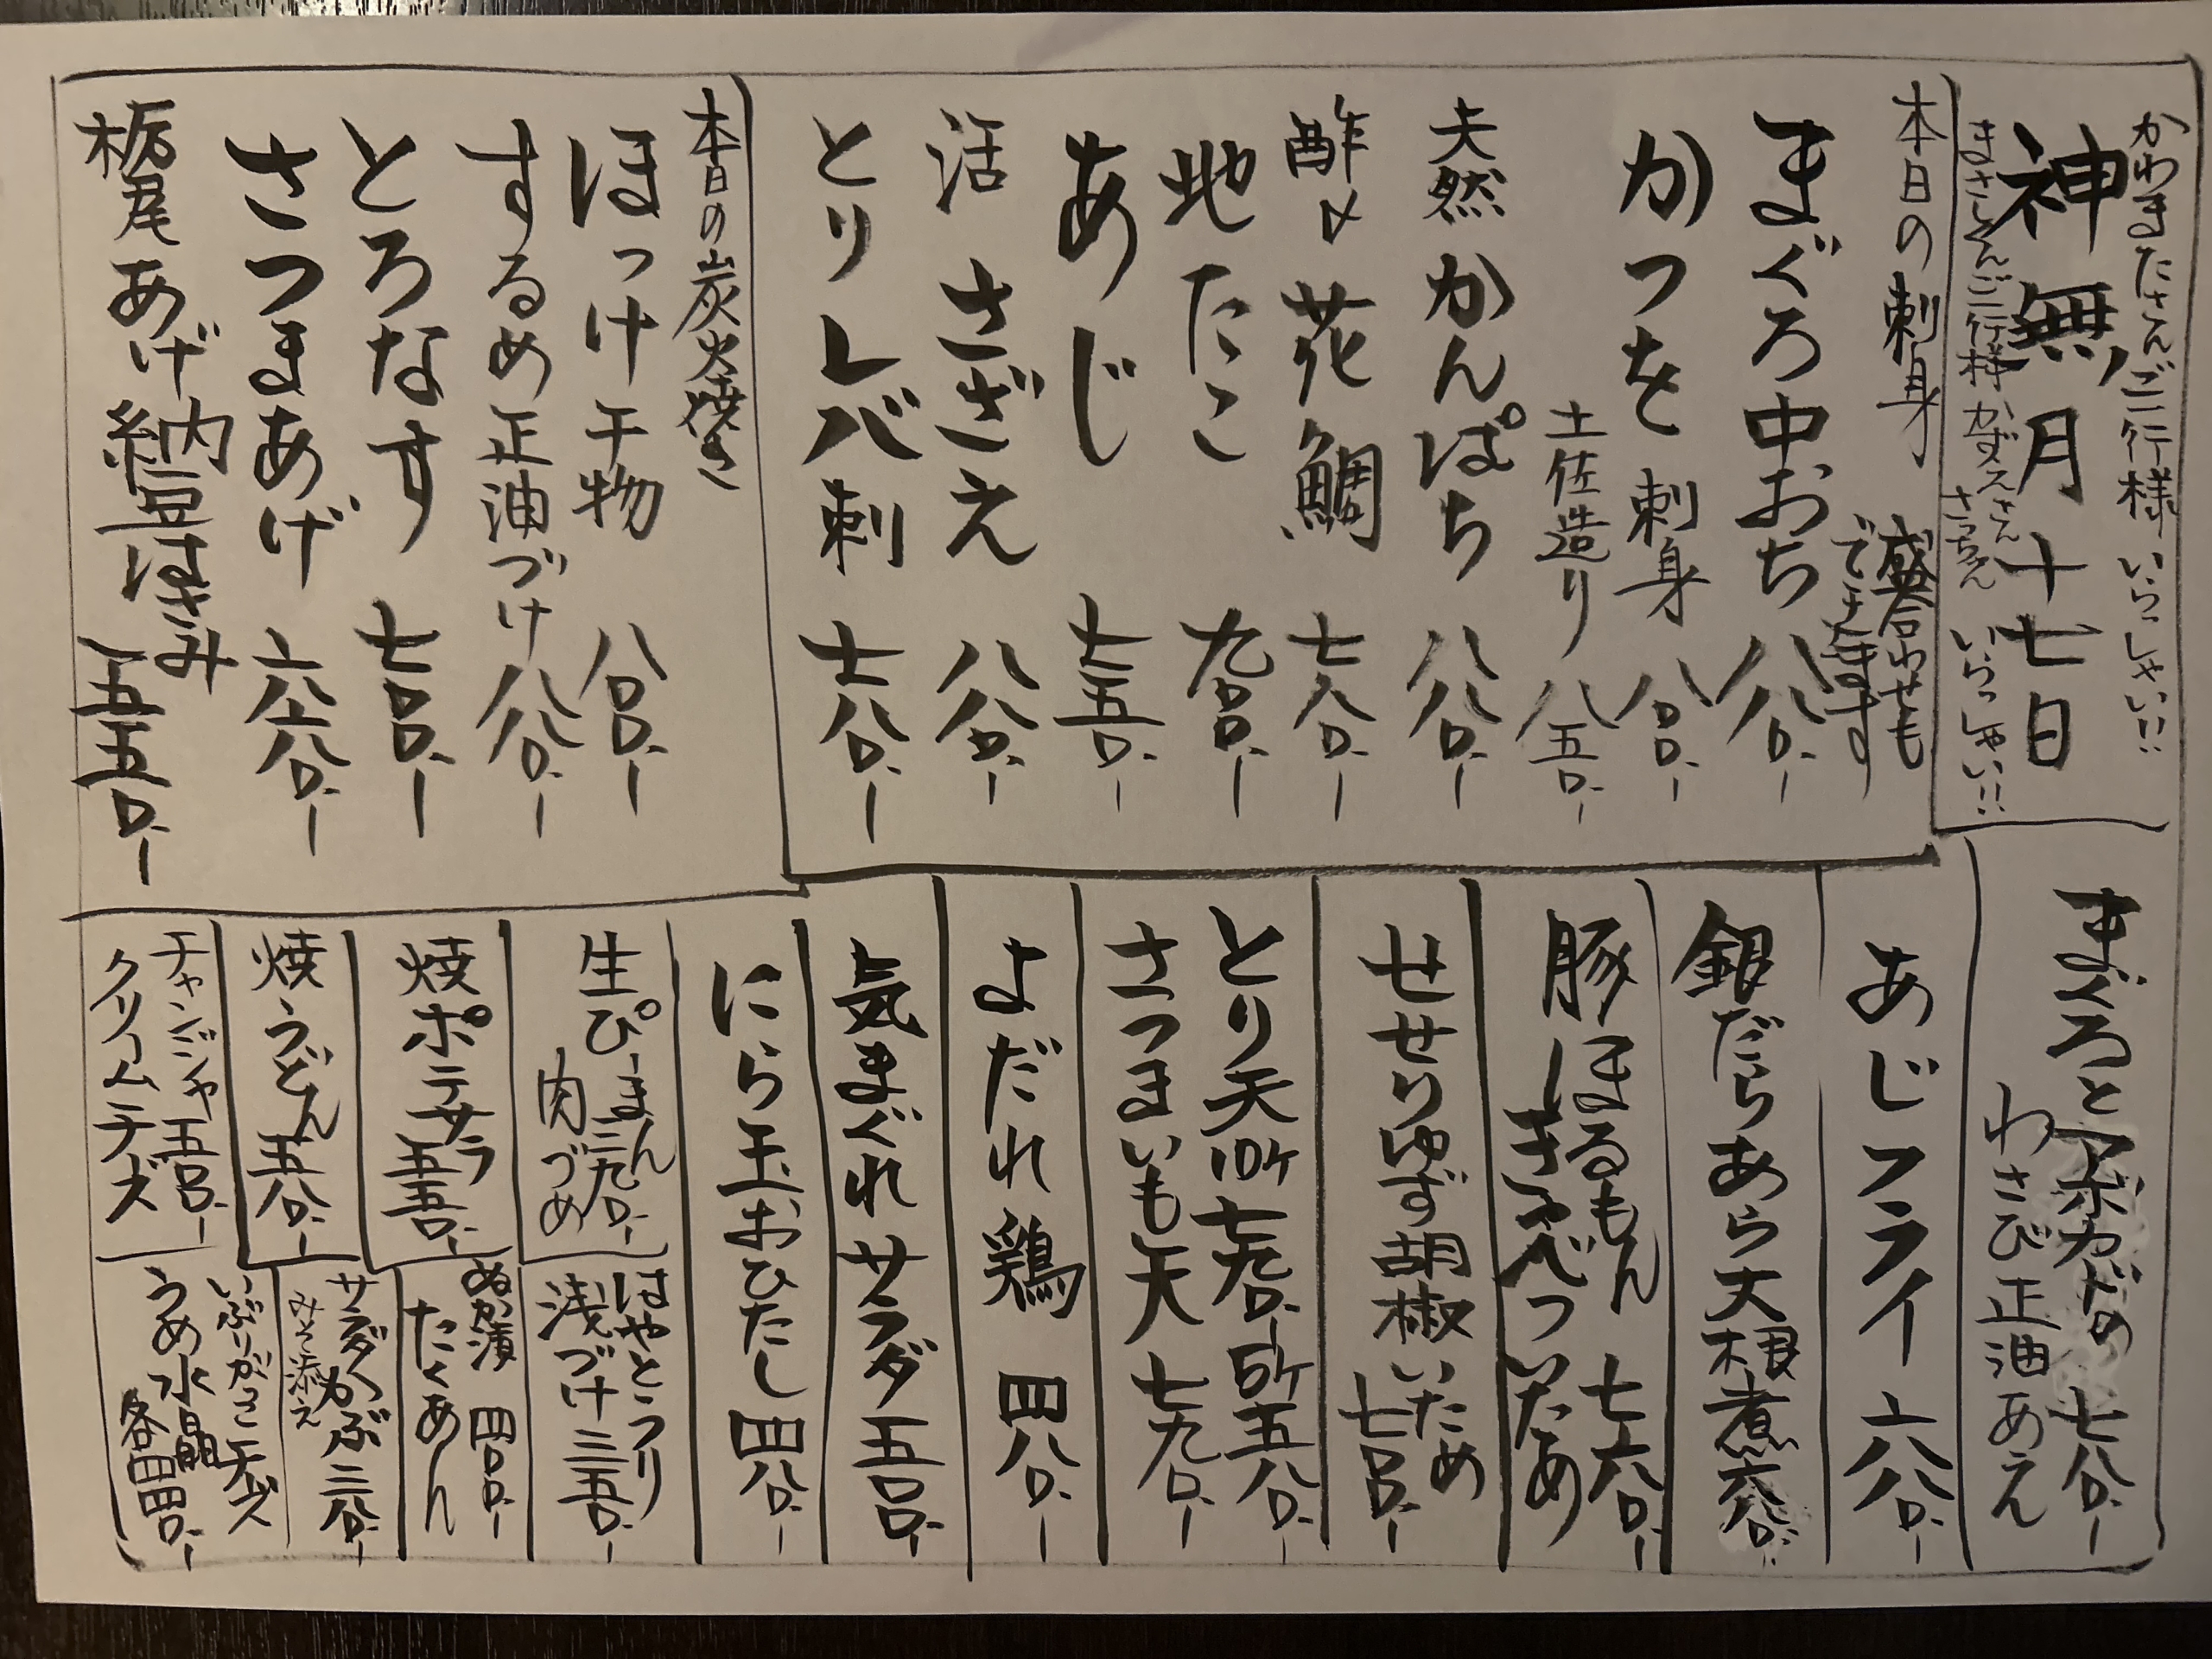 かわまたさんご一行様 いらっしゃい!!
神無月十七日
まさしくんご一行様 かずえさん さっちゃん いらっしゃい!!
本日の刺身 盛合わせも
できます
まぐろ中おち 八八〇.ー
かつを刺身 八八〇.ー
土佐造り 八五〇.ー
天然かんぱち 八八〇.ー
酢〆花鯛 七八〇.ー
地たこ 九八〇.ー
あじ 七五〇.ー
活さざえ 八八〇.ー
とりレバ刺 七八〇.ー
本日の炭火焼き
ほっけ干物 八八〇.ー
するめ正油づけ 八八〇.ー
とろなす 七八〇.ー
さつまあげ 六八〇.ー
栃尾あげ納豆はさみ 五五〇.ー
まぐろとアボカドの 七八〇.ー
わさび正油あえ
あじフライ 六八〇.ー
銀だらあら大根煮 六八〇.ー
豚ほるもん 七六〇.ー
きゃべついため
せせりゆず胡椒いため
七八〇.ー
とり天10ヶ七九〇.ー 5ヶ五八〇.ー
さつまいも天 七九〇.ー
よだれ鶏 四八〇.ー
気まぐれサラダ 五八〇.ー
にら玉おひたし 四八〇.ー
生ぴーまん 三九〇.ー
肉づめ
焼ポテサラ
五五〇.ー
焼うどん 五八〇.ー
チャンジャ 五八〇.ー
クリームチーズ
はやとうり
浅づけ 三五〇.ー
ぬか漬 四八〇.ー
たくあん
サラダかぶ 三八〇.ー
みそ添え
いぶりがっこチーズ
うめ水晶
各四四〇.ー